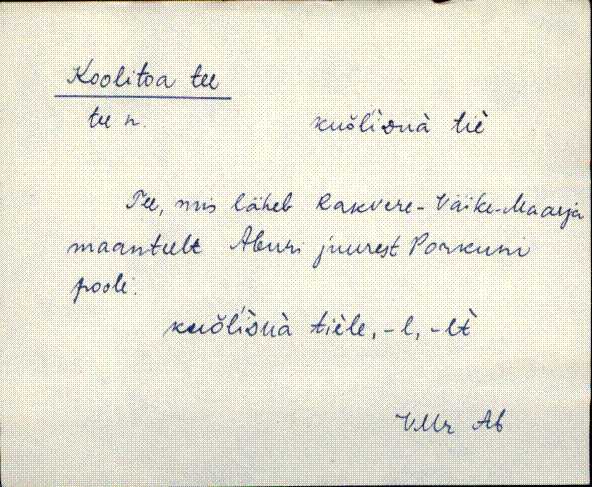 Koolitoa tee
tee n. kuoĺi̮duà tiè
Tee, mis läheb Rakvere-Väike-Maarja
maanteelt Aburi juurest Porkuni
poole.
tièle, -l, -lt̀
VMr Ab